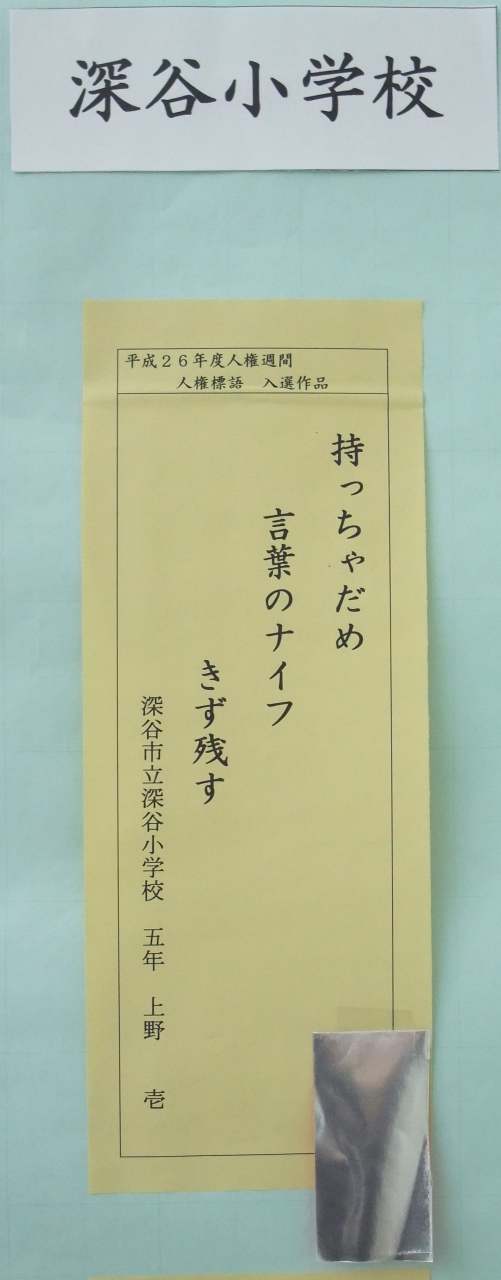 深谷小学校
平成２６年度人権週間
人権標語　入選作品
持っちゃだめ
言葉のナイフ
きず残す
深谷市立深谷小学校　五年　上野　壱